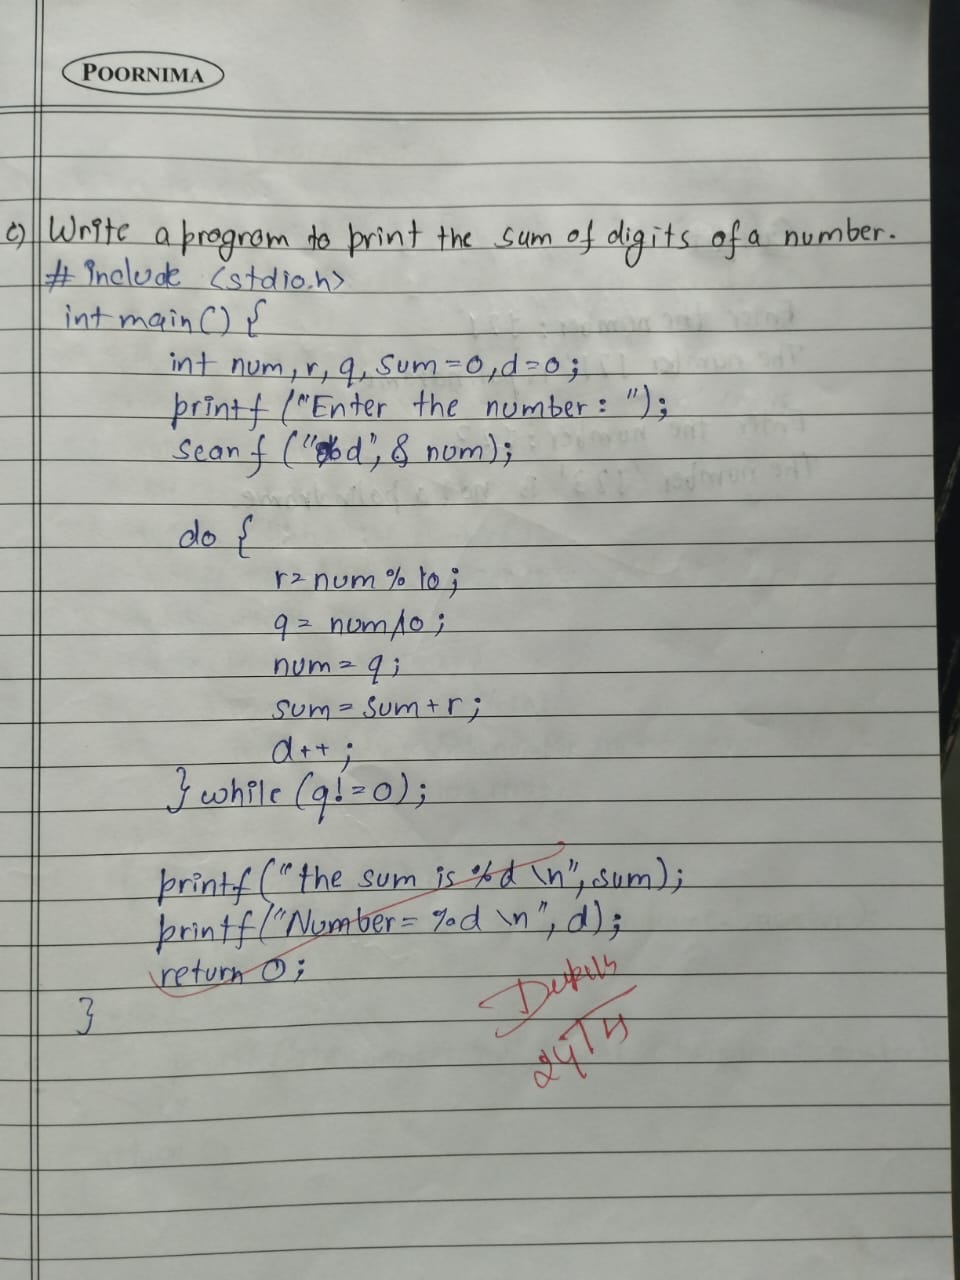 POORNIMA
c) Write a program to print the sum of digits of a number.
# include <stdio.h>
int main() {
int num, r, q, sum=0, d=0;
printf ("Enter the number: ");
scanf ("%d", & num);
do {
r= num % 10;
q= num/10;
num= q;
sum= sum+r;
d++;
} while (q!=0);
printf ("the sum is %d \n", sum);
printf ("Number= %d \n", d);
return 0;
}